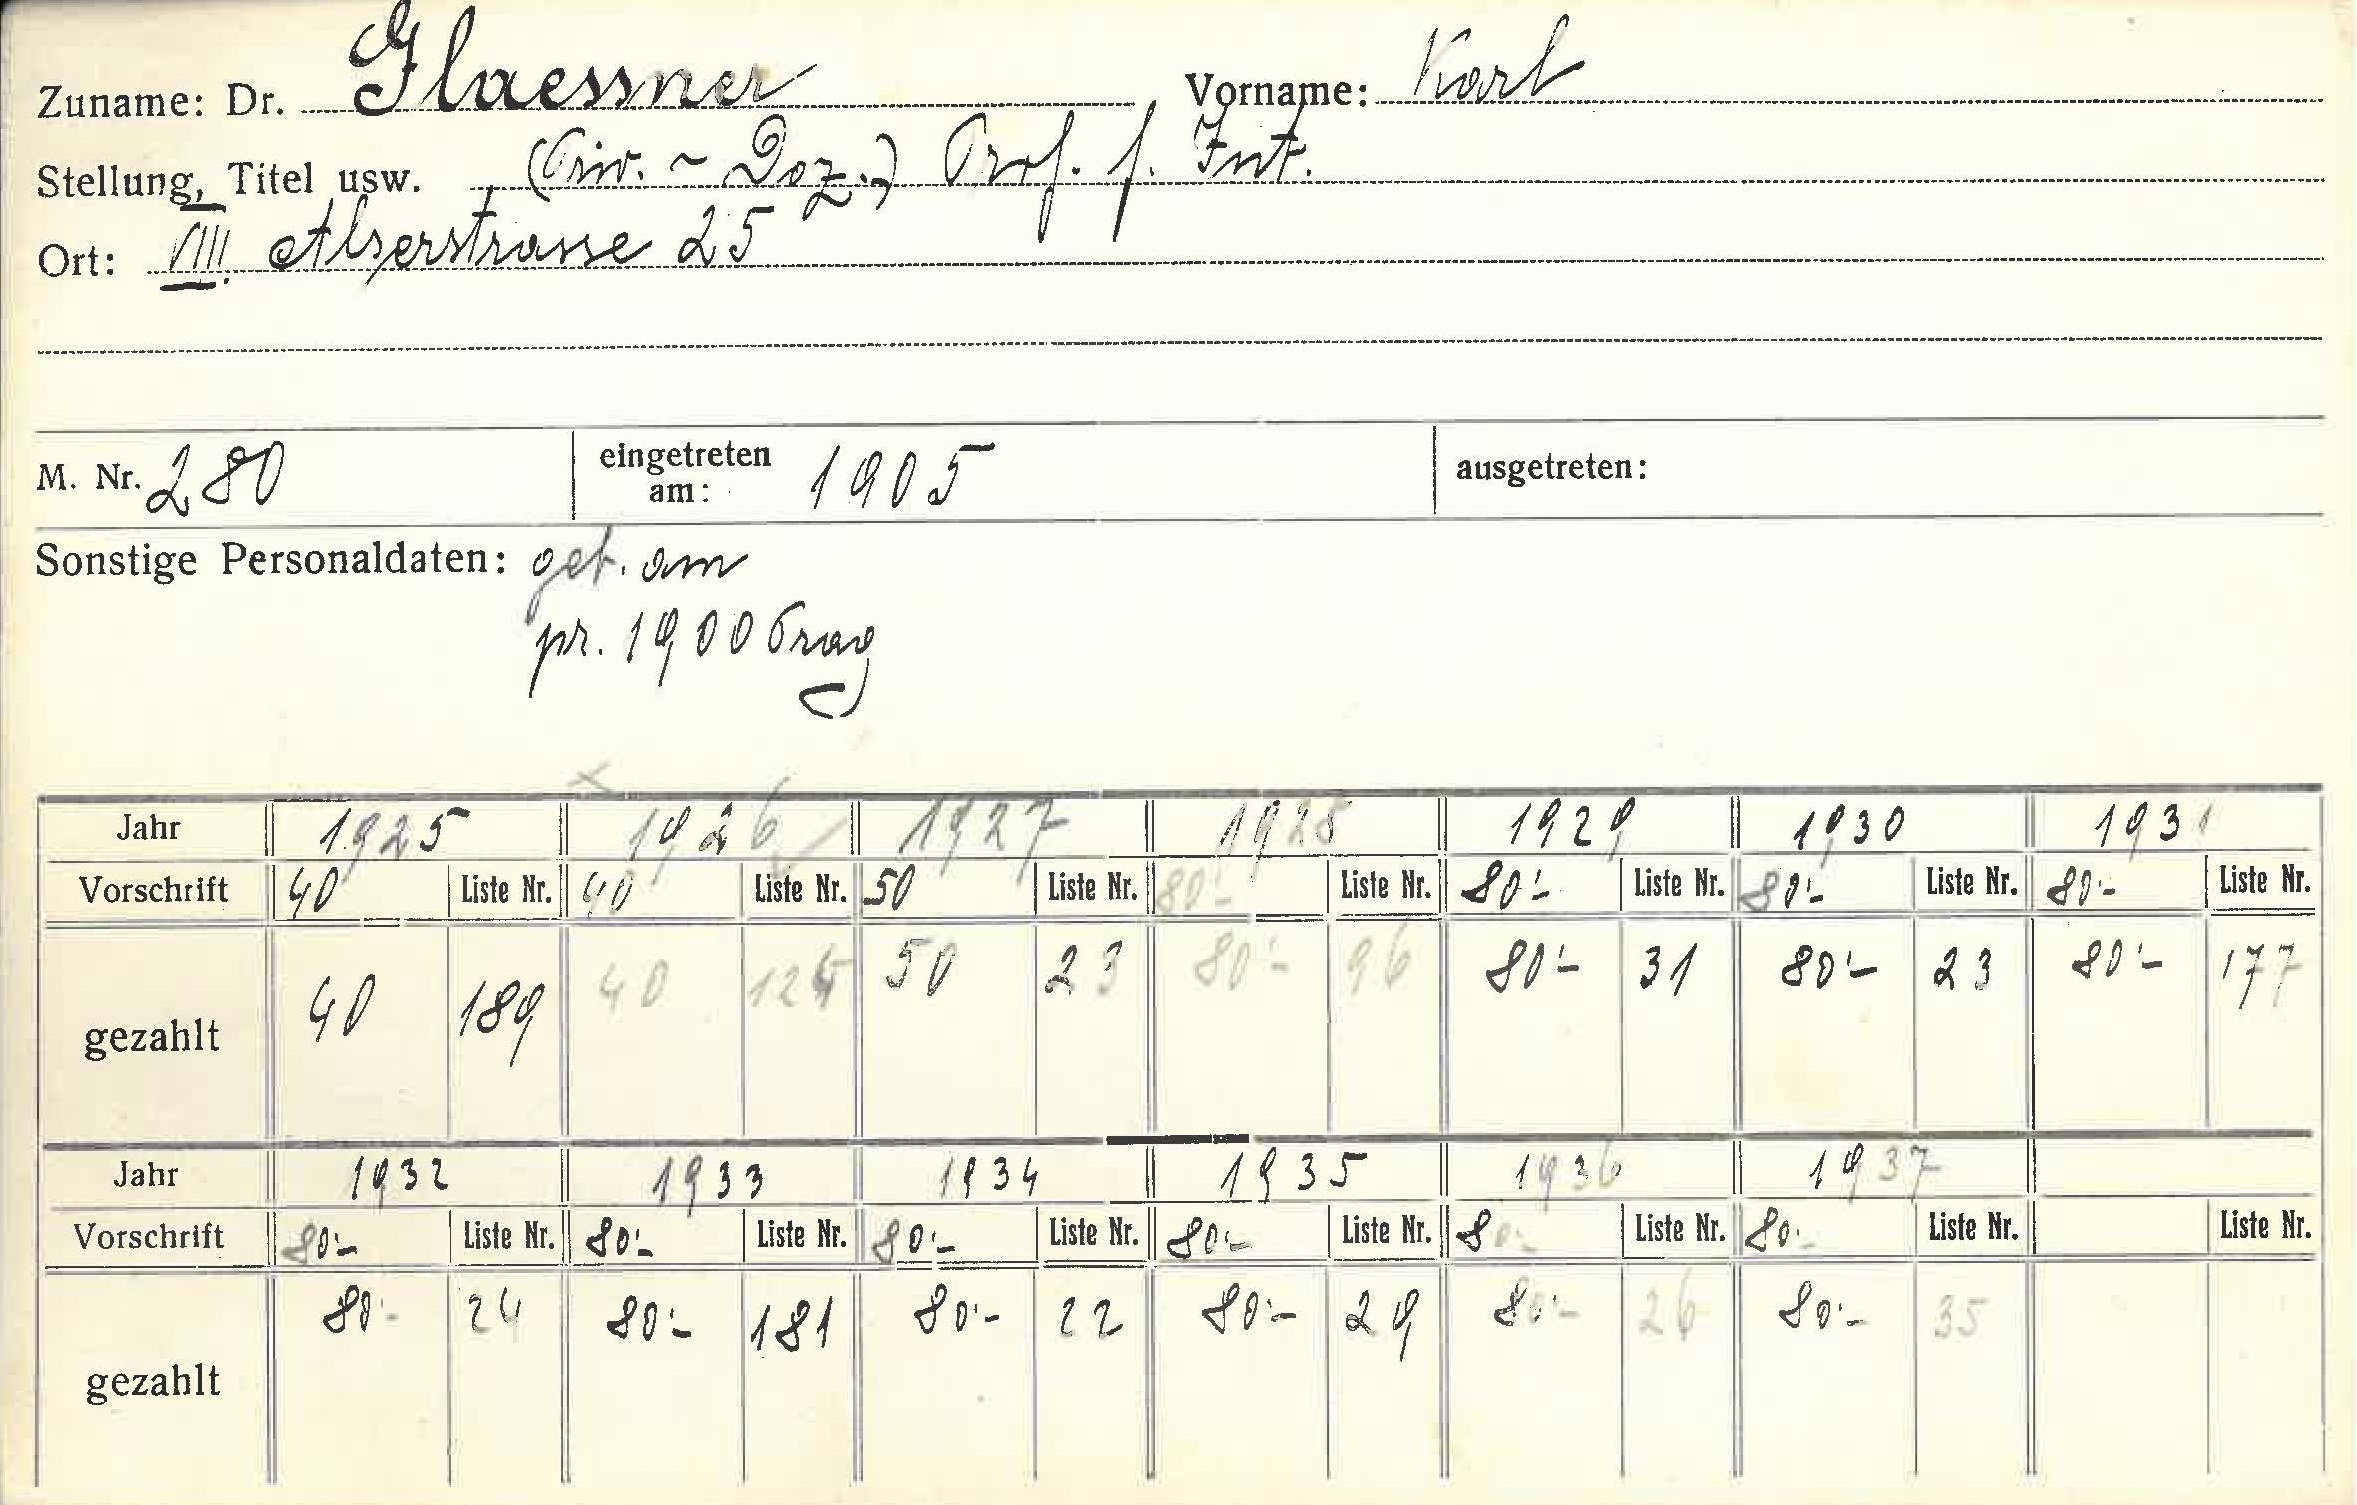 Zuname: Dr. Glaessner Vorname: Karl
Stellung, Titel usw. (Priv. - Doz.) Prof. f. Int.
Ort: VIII. Alserstrasse 25
M. Nr. 280 eingetreten am: 1905 ausgetreten:
Sonstige Personaldaten: geb. am
pr. 1900 Prag
Jahr 1925 1926 1927 1928 1929 1930 1931
Vorschrift 40 Liste Nr. 40 Liste Nr. 50 Liste Nr. 80'- Liste Nr. 80'- Liste Nr. 80'- Liste Nr. 80'- Liste Nr.
gezahlt 40 189 40 50 23 80'- 96 80'- 31 80'- 23 80'- 177
Jahr 1932 1933 1934 1935 1936 1937
Vorschrift 80'- Liste Nr. 80'- Liste Nr. 80'- Liste Nr. 80'- Liste Nr. 80'- Liste Nr. 80'- Liste Nr. Liste Nr.
gezahlt 80'- 24 80'- 181 80'- 22 80'- 29 80'- 26 80'- 35